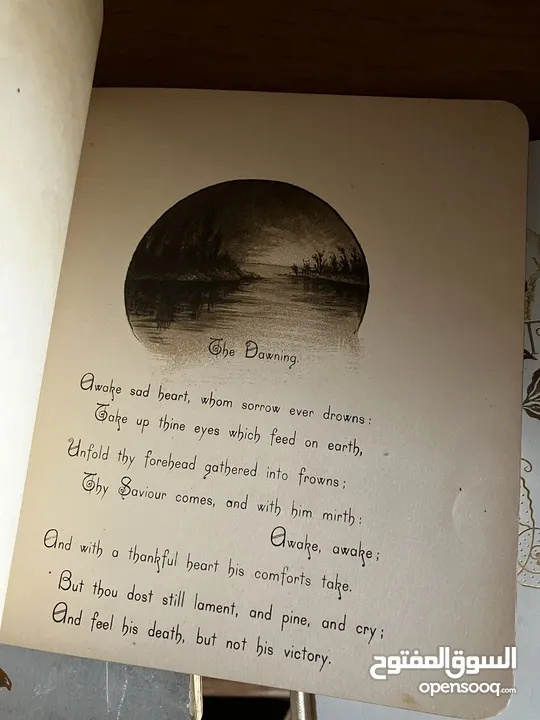 The Dawning.
Awake sad heart, whom sorrow ever drowns:
Take up thine eyes which feed on earth,
Unfold thy forehead gathered into frowns;
Thy Saviour comes, and with him mirth:
Awake, awake;
And with a thankful heart his comforts take.
But thou dost still lament, and pine, and cry;
And feel his death, but not his victory.
السوق المفتوح
opensooq.com